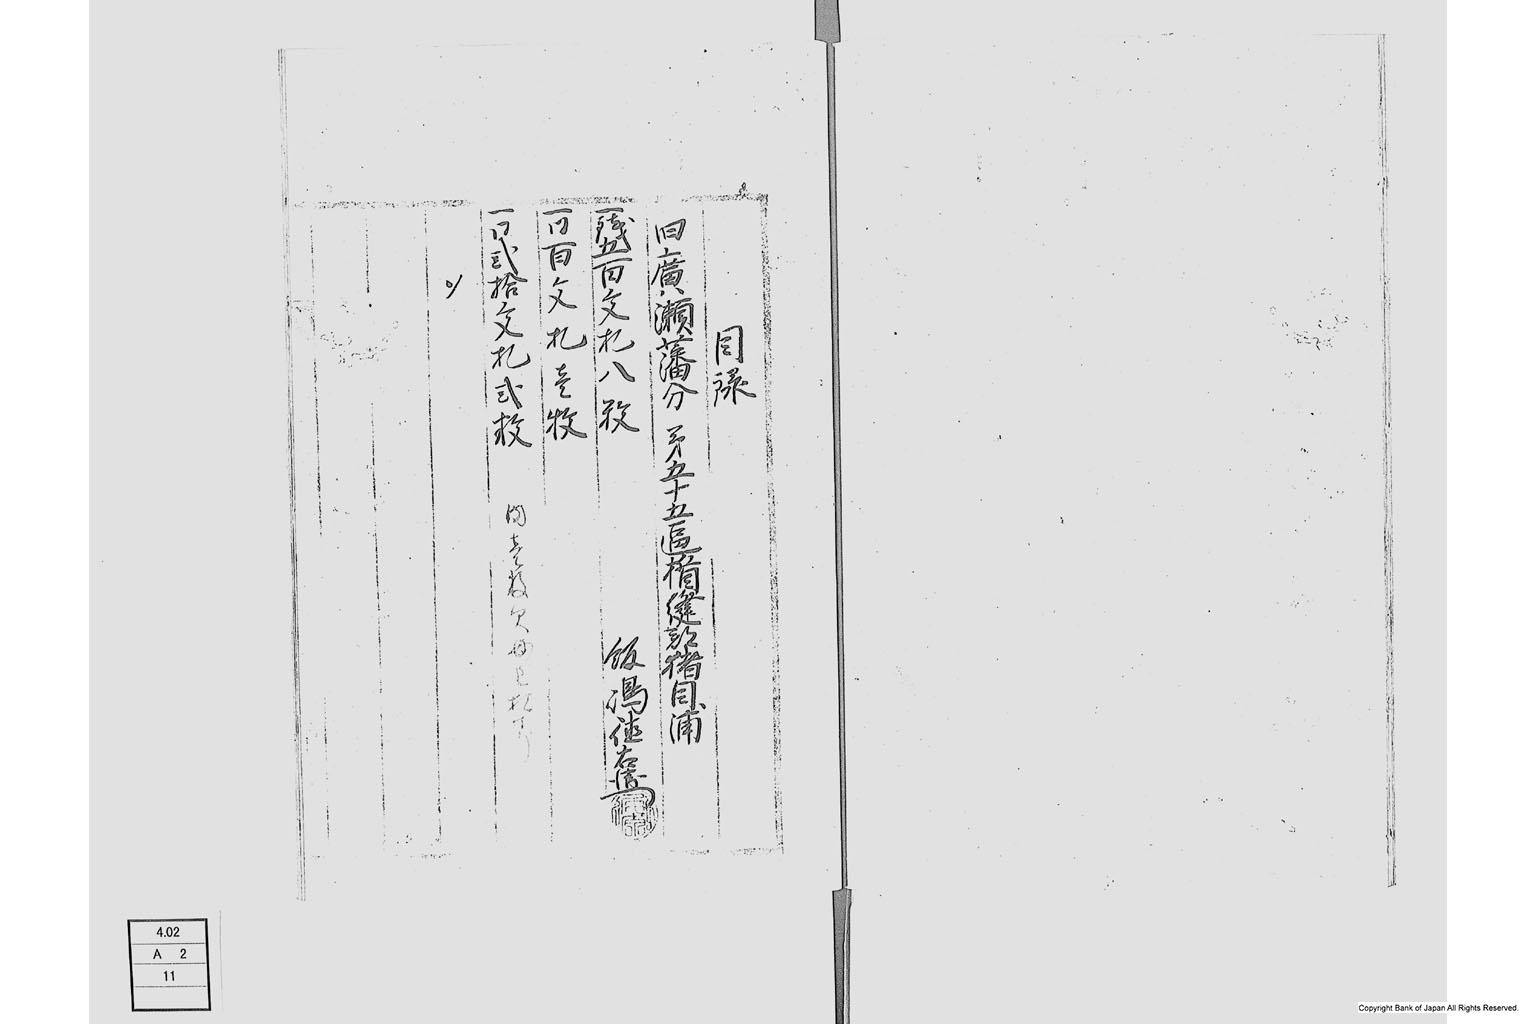 目録
旧廣瀬藩分 第五十五區楯縫郡猪目浦
一銭五百文札八枚 飯塚
一同百文札壱枚
一同弐拾文札弐枚 内壱枚欠
〆
4.02
A 2
11
Copyright Bank of Japan All Rights Reserved.